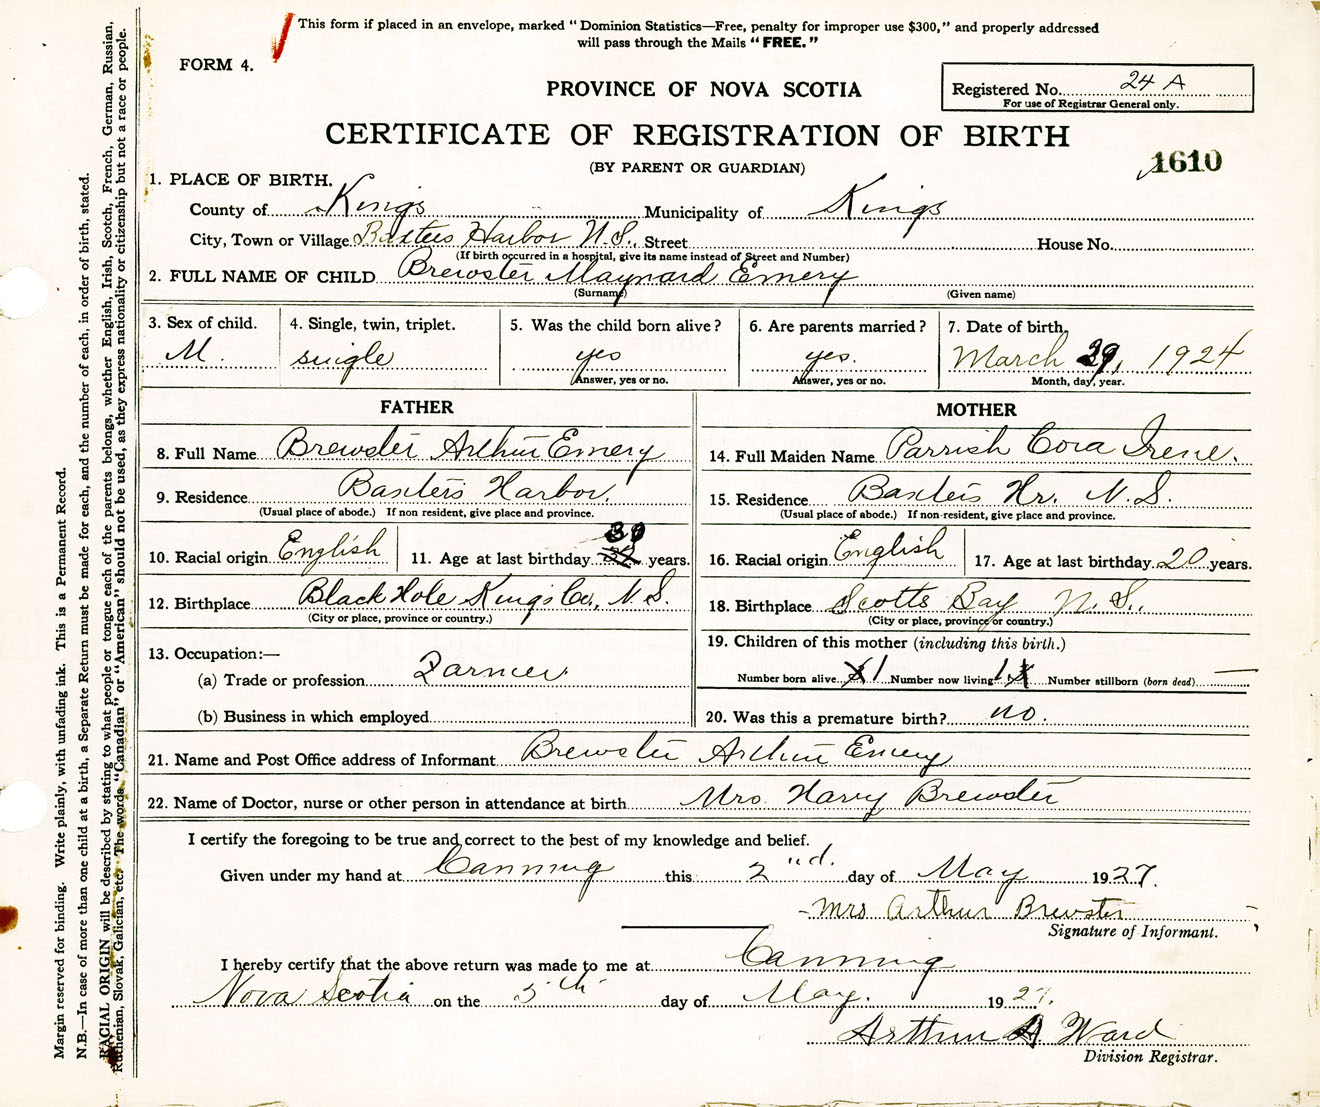 This form if placed in an envelope, marked "Dominion Statistics—Free, penalty for improper use $300," and properly addressed
will pass through the Mails "FREE."
FORM 4.
PROVINCE OF NOVA SCOTIA
Registered No. 24 A
For use of Registrar General only.
CERTIFICATE OF REGISTRATION OF BIRTH
(BY PARENT OR GUARDIAN)
1610
1. PLACE OF BIRTH.
County of Kings Municipality of Kings
City, Town or Village Baxters Harbor N.S. Street House No.
(If birth occurred in a hospital, give its name instead of Street and Number)
2. FULL NAME OF CHILD Brewster Maynard Emery
(Surname) (Given name)
3. Sex of child. 4. Single, twin, triplet. 5. Was the child born alive? 6. Are parents married? 7. Date of birth,
M. single yes yes. March 29, 1924
Answer, yes or no. Answer, yes or no. Month, day, year.
FATHER MOTHER
8. Full Name Brewster Arthur Emery
14. Full Maiden Name Parrish Cora Irene.
9. Residence Baxters Harbor.
(Usual place of abode.) If non resident, give place and province.
15. Residence Baxters Hr. N.S.
(Usual place of abode.) If non-resident, give place and province.
10. Racial origin English 11. Age at last birthday 30 years.
16. Racial origin English 17. Age at last birthday 20 years.
12. Birthplace Black Hole Kings Co., N.S.
(City or place, province or country.)
18. Birthplace Scotts Bay N.S.,
(City or place, province or country.)
13. Occupation:—
(a) Trade or profession Farmer
(b) Business in which employed
19. Children of this mother (including this birth.)
Number born alive 1 Number now living 1 Number stillborn (born dead) —
20. Was this a premature birth? no.
21. Name and Post Office address of Informant Brewster Arthur Emery
22. Name of Doctor, nurse or other person in attendance at birth Mrs. Harry Brewster
I certify the foregoing to be true and correct to the best of my knowledge and belief.
Given under my hand at Canning this 2nd. day of May 1927.
Mrs Arthur Brewster
Signature of Informant.
I hereby certify that the above return was made to me at Canning
Nova Scotia on the 5th day of May. 1927.
Arthur A Ward
Division Registrar.
Margin reserved for binding. Write plainly, with unfading ink. This is a Permanent Record.
N.B.—In case of more than one child at a birth, a Separate Return must be made for each, and the number of each, in order of birth, stated.
RACIAL ORIGIN will be described by stating to what people or tongue each of the parents belongs, whether English, Irish, Scotch, French, German, Russian,
Ruthenian, Slovak, Galician, etc. The words "Canadian" or "American" should not be used, as they express nationality or citizenship but not a race or people.